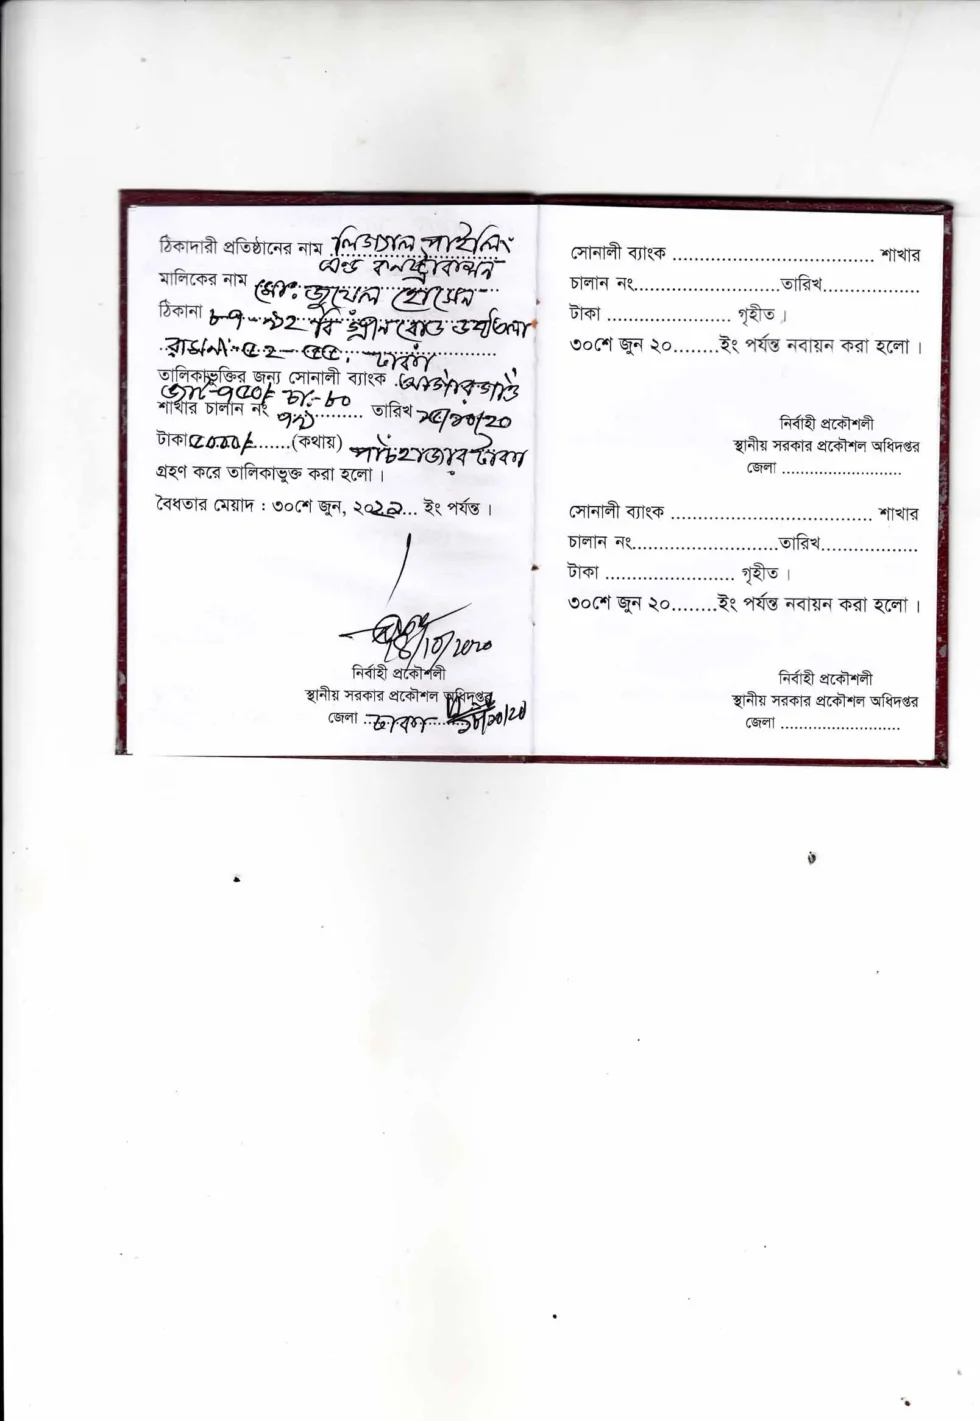 ঠিকাদারী প্রতিষ্ঠানের নাম পাইলিং
এন্ড
মালিকের নাম মোঃ জুয়েল হোসেন
ঠিকানা ৮৭
ঢাকা
তালিকাভুক্তির জন্য সোনালী ব্যাংক
শাখার চালান নং তারিখ
টাকা ৫০০০/- ......(কথায়) পাঁচ হাজার টাকা
গ্রহণ করে তালিকাভুক্ত করা হলো ।
বৈধতার মেয়াদ : ৩০শে জুন, ২০২১... ইং পর্যন্ত ।
নির্বাহী প্রকৌশলী
স্থানীয় সরকার প্রকৌশল অধিদপ্তর
জেলা ..ঢাকা
সোনালী ব্যাংক .................................... শাখার
চালান নং............................তারিখ...................
টাকা ....................... গৃহীত ।
৩০শে জুন ২০........ইং পর্যন্ত নবায়ন করা হলো ।
নির্বাহী প্রকৌশলী
স্থানীয় সরকার প্রকৌশল অধিদপ্তর
জেলা ........................
সোনালী ব্যাংক .................................... শাখার
চালান নং............................তারিখ...................
টাকা ........................ গৃহীত ।
৩০শে জুন ২০........ইং পর্যন্ত নবায়ন করা হলো ।
নির্বাহী প্রকৌশলী
স্থানীয় সরকার প্রকৌশল অধিদপ্তর
জেলা ........................